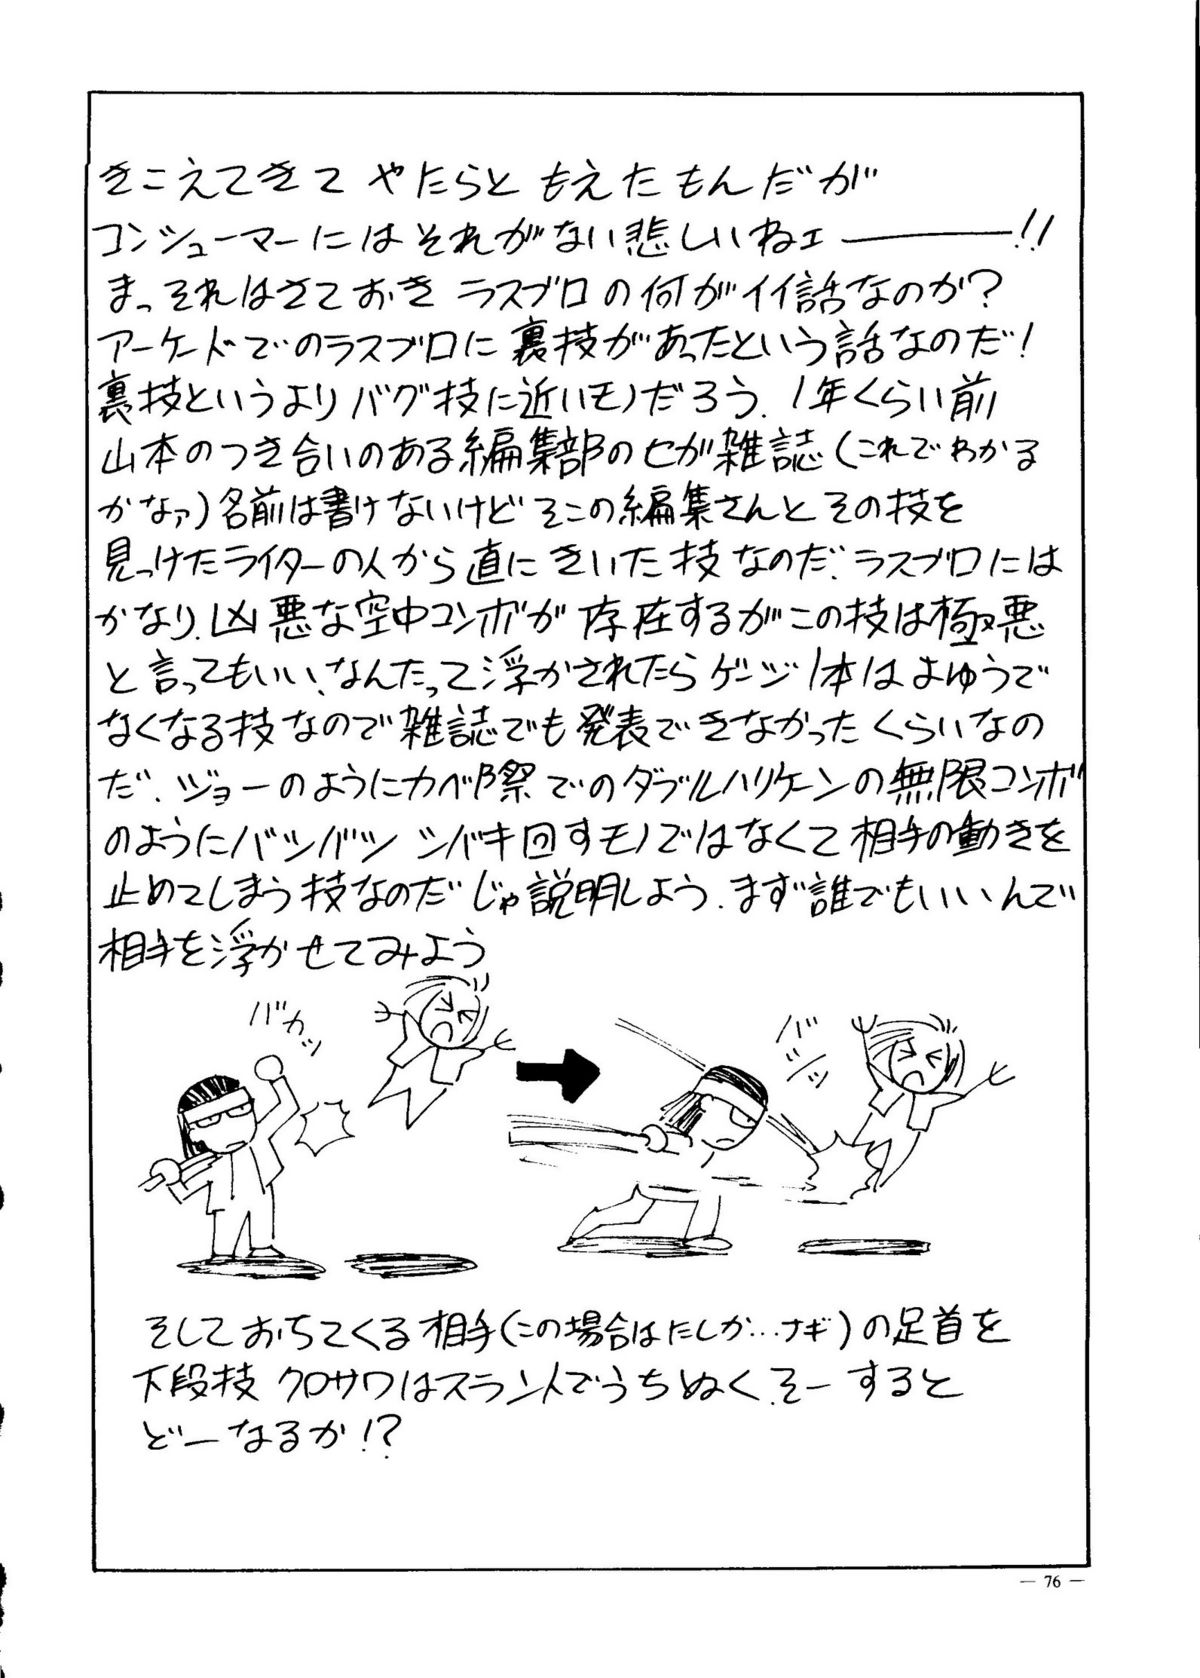 きこえてきて やたらと もえたもんだが
コンシューマーにはそれがない悲しいねェ――――!!
まっそれはさておき ラスブロの何がイイ話なのか?
アーケードでのラスブロに裏技があったという話なのだ!
裏技というよりバグ技に近いモノだろう、1年くらい前
山本のつき合いのある編集部のセガ雑誌(これでわかる
かなァ)名前は書けないけど そこの編集さんとその技を
見っけたライターの人から直にきいた技なのだ、ラスブロには
かなり、凶悪な空中コンボが存在するがこの技は極悪
と言ってもいい、なんたって浮かされたらゲージ1本はよゆうで
なくなる技なので雑誌でも発表できなかったくらいなの
だ、ジョーのようにカベ際でのダブルハリケーンの無限コンボ
のようにバシバシ シバキ回すモノではなくて相手の動きを
止めてしまう技なのだ じゃ説明しよう、まず誰でもいいんで
相手を浮かせてみよう
バカッ
バシッ
そしておちてくる相手(この場合はたしか…ナギ)の足首を
下段技 クロサワはスラントでうちぬく、そーすると
どーなるか!?
— 76 —